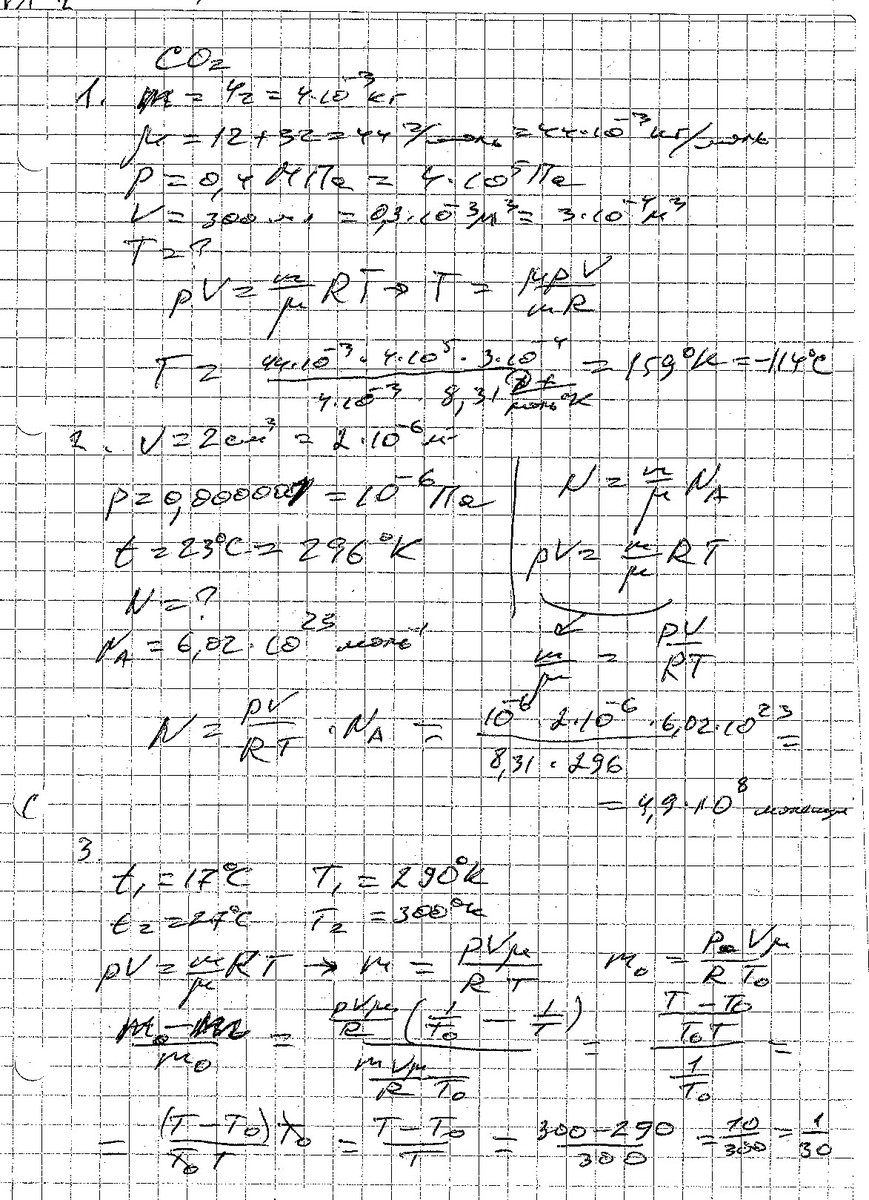 CO₂
1. m = 4г = 4·10⁻³кг
μ = 12+32 = 44 г/моль = 44·10⁻³ кг/моль
P = 0,4 МПа = 4·10⁵ Па
V = 300 мл = 0,3·10⁻³м³ = 3·10⁻⁴м³
T = ?
pV = m/μ RT → T = μpV/mR
T = 44·10⁻³·4·10⁵·3·10⁻⁴ / 4·10⁻³·8,31 Дж/моль°K = 159°K = -114°C
2. V = 2 см³ = 2·10⁻⁶ м³
p = 0,000001 = 10⁻⁶ Па
t = 23°C = 296°K
N = ?
N_A = 6,02·10²³ моль⁻¹
N = m/μ N_A
pV = m/μ RT
m/μ = pV/RT
N = pV/RT · N_A = 10⁻⁶ 2·10⁻⁶·6,02·10²³ / 8,31·296 =
= 4,9·10⁸ молекул
3.
t₁ = 17°C T₁ = 290°K
t₂ = 27°C T₂ = 300°K
pV = m/μ RT → m = pVμ/RT m₀ = p₀Vμ/RT₀
m₀-m/m₀ = pVμ/R (1/T₀ - 1/T) / m Vμ/R T₀ = T-T₀/T₀T / 1/T₀ =
= (T-T₀)T₀/T₀T = T-T₀/T = 300-290/300 = 10/300 = 1/30